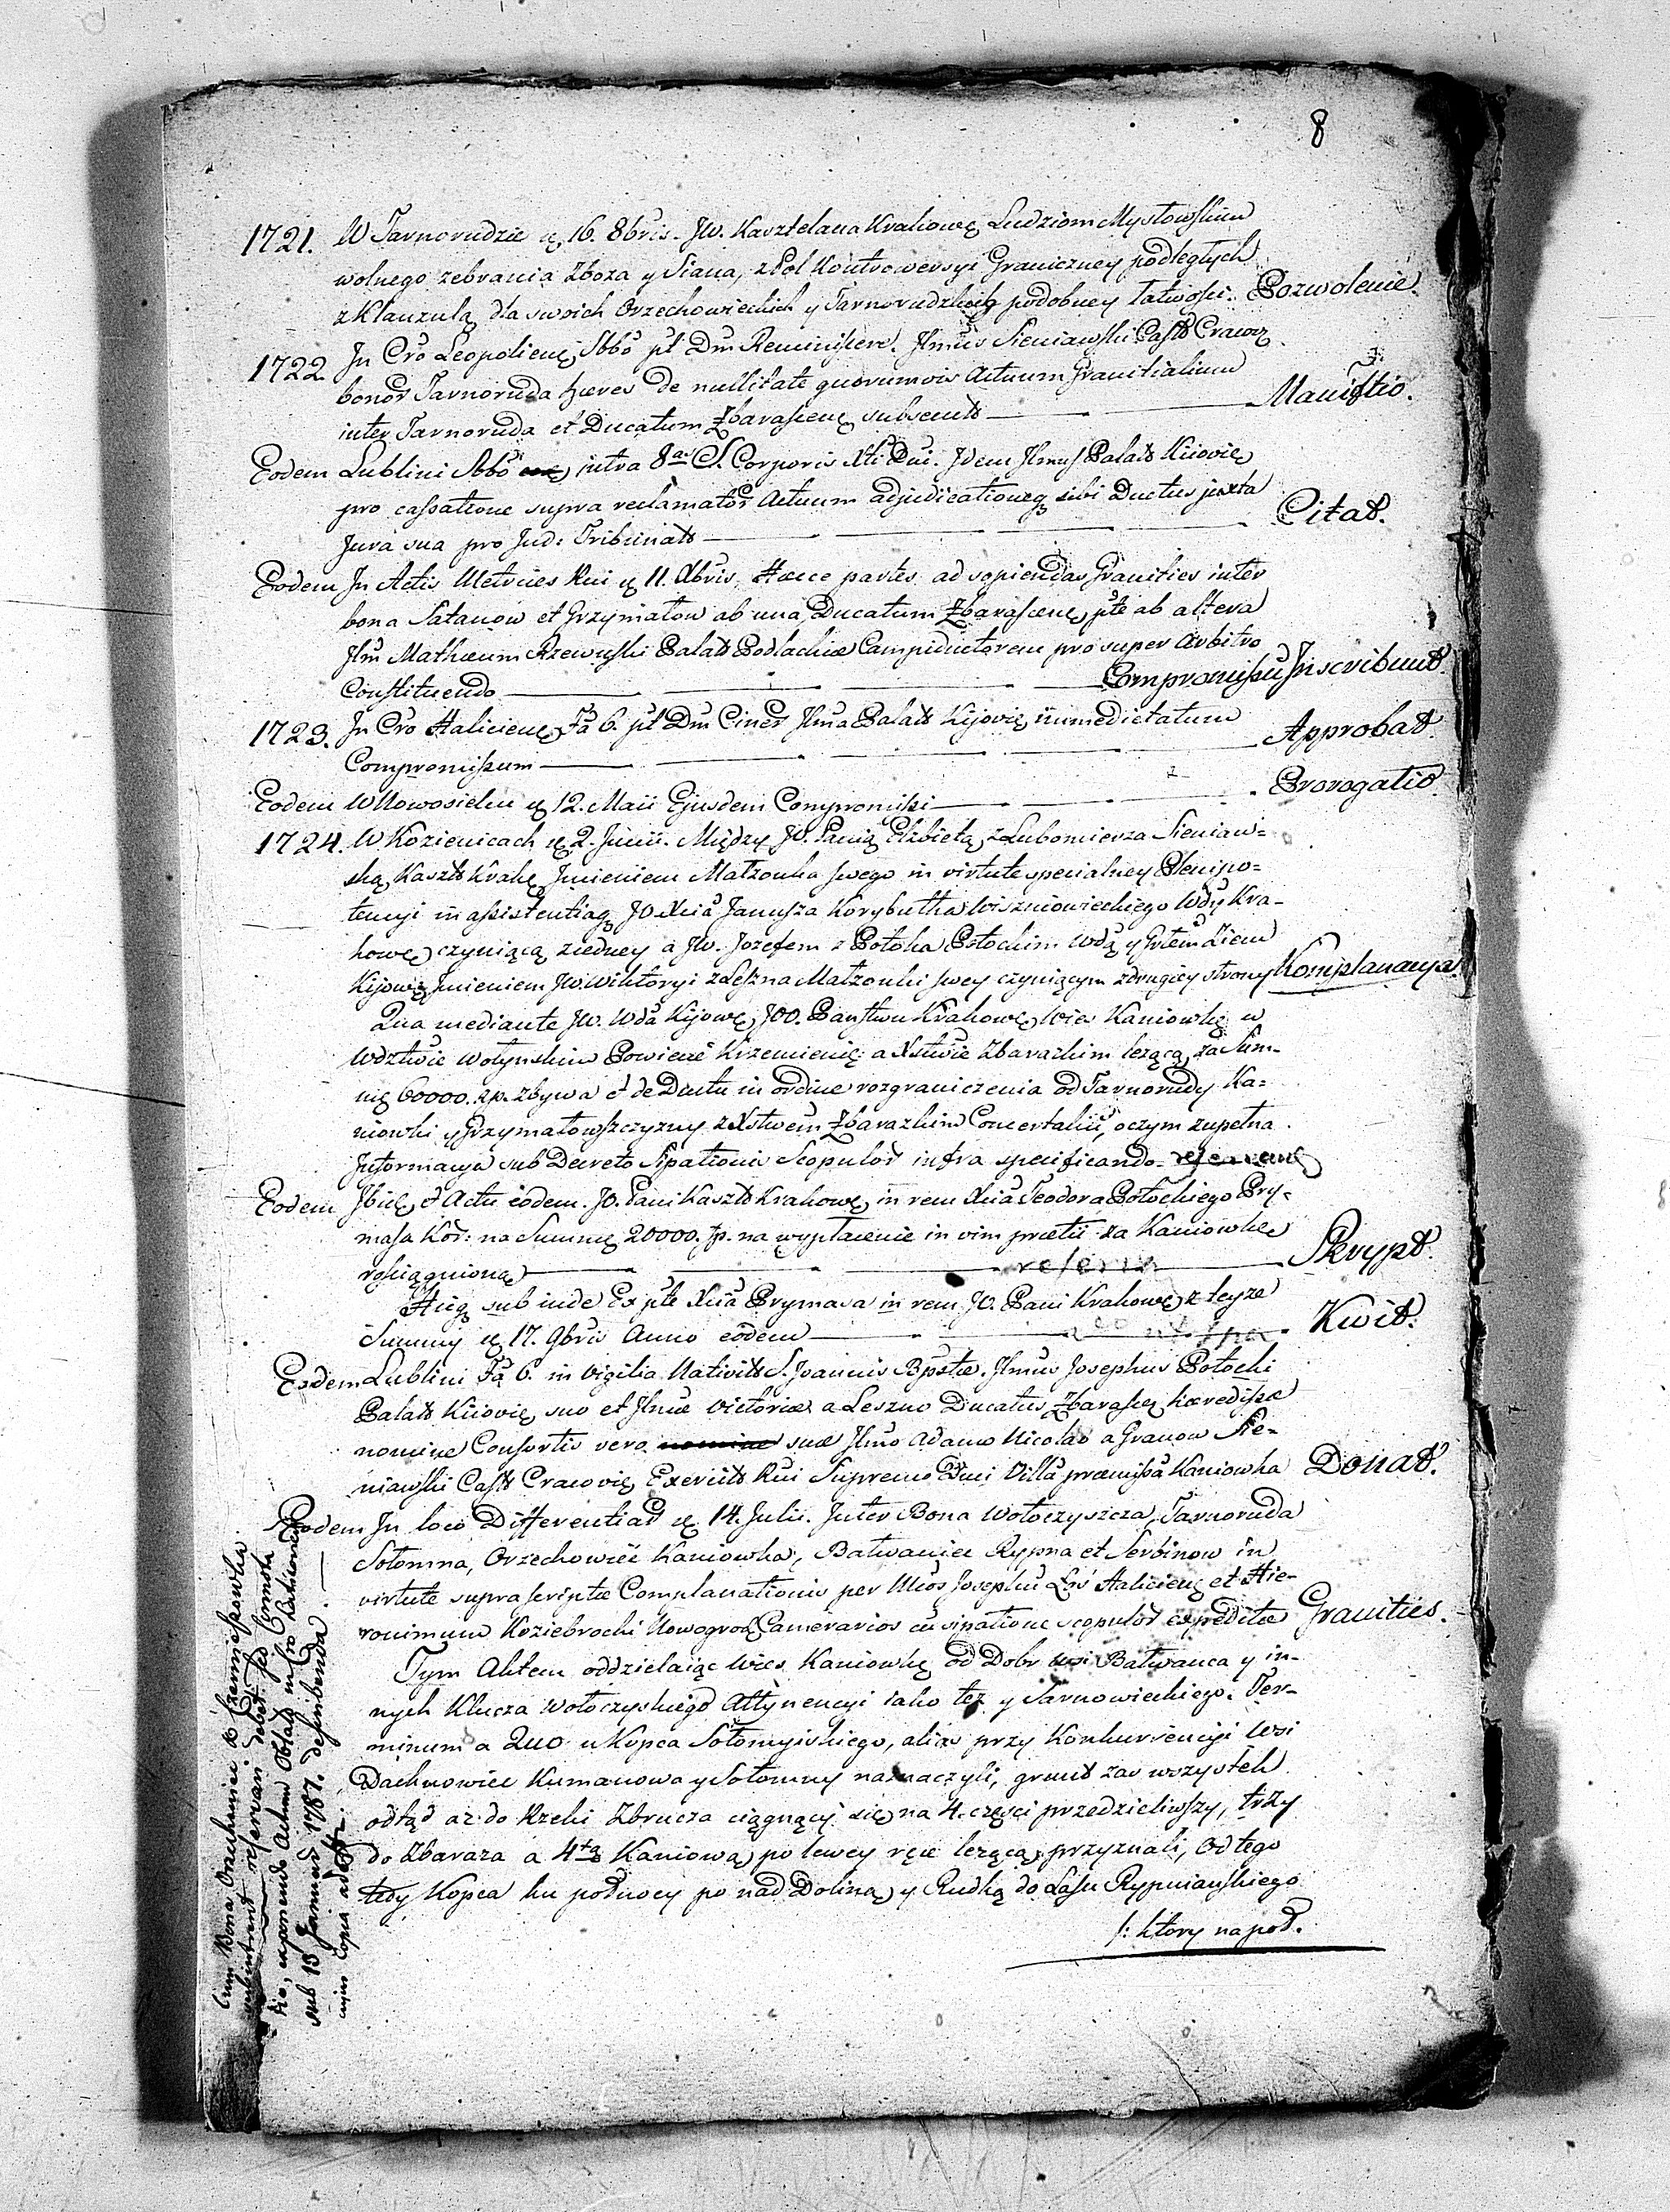 8
1721. W Tarnorudzie ę 16. 8bris. JW. Kasztelana Krakowę Ludziom Mysłowskim
wolnego zebrania Zboza y Siana, z Pol Kontrowersyi Graniczney podległych
z Klauzulą dla swoich Orzechowieckich y Tarnorudzkich podobney łatwości. Pozwolenie.
1722 In Cro Leopolienę Sbbo pt Dm Reminiscere. Jlmus Sieniawski Castt Cracoę
bonor Tarnoruda hæres de nullitate quorumvis Actuum Granitialium
inter Tarnoruda et Ducatum Zbarasienę subsecuts Manifftio.
Eodem Lublini Sbbo intra 8a S. Corporis Xti Dni. Idem Jlmus Palatt Kiovię
pro cassatione supra reclamator Actuum adjudicationeq sibi Ductus juxta
Jura sua pro Jud: Tribunats Citat.
Eodem In Actis Metrices Rni ę 11. Xbris. Hæcce partes ad sopiendas Granities inter
bona Satanow et Grzymałow ab una, Ducatum Zbarascenę pte ab altera
Jlm Mathæum Rzewuski Palatt Podlachiæ Campiductorem pro super Arbitro
Constituendo Compromissu Inscribunt.
1723. In Cro Halicienę Fa 6. pt Dm Ciner Jlma Palatt Kijovię immedietatum
Compromissum Approbat.
Eodem W Nowosielcu ę 12. Maii Ejusdem Compromissi Prorogatio.
1724. W Kozienicach ę 2. Junii. Między JO. Panią Elzbietą z Lubomierza Sieniaw=
ską, Kasztt Krakę Imieniem Małzonka swego in virtute specialney Plenipo=
tencyi in assistentiaq JO. Xcia Janusza Korybutha Wiszniowieckiego Wdy Kra-
kowę czyniącą ziedney a JW. Jozefem z Potoka Potockim Wdą y Grłem Ziem
Kijowę Imieniem JW. Wiktoryi z Leszna Małzonki swey czyniącym z drugiey strony Komplanacya
Qua mediante JW. Wda Kijowę, JOO. Państwu Krakowę Wieś Kaniowkę w
Wdztwie Wołynskim Powiecie Krzemienię: a Xstwie Zbarazkim lezącą, za Sum-
mę 60000. zp. zbywa et de Ductu in ordine rozgraniczenia od Tarnorudy Ka=
niowki y Grzymałowszczyzny z Xstwem Zbarazkim Concertalii, o czym zupełna
Informacya sub Decreto Sipationis Scopulor infra specificando.
Eodem Ibię et Actu eodem. JO. Pani Kasztt Krakowę in rem Xcia Teodora Potockiego Pry-
masa Kor: na Summę 20000. zp. na wypłacenie in vim prætii za Kaniowkę
rościągnioną Skrypt.
Hicq sub inde Ex pte Xcia Prymasa in rem JO. Pani Krakowę z teyze
Summy ę 17. 9bris Anno eodem Kwit.
Eodem Lublini Fa 6. in Vigilia Nativits S. Joannis Bpstæ. Jlmus Josephus Potocki
Palatt Kiovię suo et Jlmæ Victoriæ a Leszno Ducatus Zbarasię hæredissæ
nomine Consortis vero suæ Jlmo Adamo Nicolao a Granow Sie-
niawski Castt Cracovię Exercits Rni Supremo Duci Villa præmissa Kaniowka Donat.
Eodem In loco Differentiar ę 14. Julii. Inter Bona Wołoczyszcza, Tarnoruda
Sołomna, Orzechowiec Kaniowka, Bałwanice Rypna et Serbinow in
virtute supra scriptæ Complanationis per Mcos Josephu Halicienę et Hie-
ronimum Koziebrocki Nowogrod Camerarios cu sipatione scopulor expeditæ Granities.
Tym Aktem oddzielaiąc Wies Kaniowkę od Dobr wsi Bałwanca y in-
nych Klucza Wołoczyskiego Attynencyi iako tez y Tarnowieckiego. Ter-
minum a Quo u Kopca Sołomyiskiego, alias przy Konkurrencyi Wsi
Dachnowiec Kumanowa y Sołomny naznaczyli, grunt zas wszystek
odtąd az do Rzeki Zbrucza ciągnący się na 4. części przedzieliwszy, trzy
do Zbaraza a 4tą Kaniową po lewey ręce lezącą przyznali, Od tego
tedy Kopca ku połnocy po nad Doliną y Rudką do Lasu Rypnianskiego
/: ktory na poł.
Cum Bona Orzechowiec
subintrent reservari debet
exponendo Actum Oblat in Cro
sub 13 Januar 1787. describenda
cujus Copia adest.